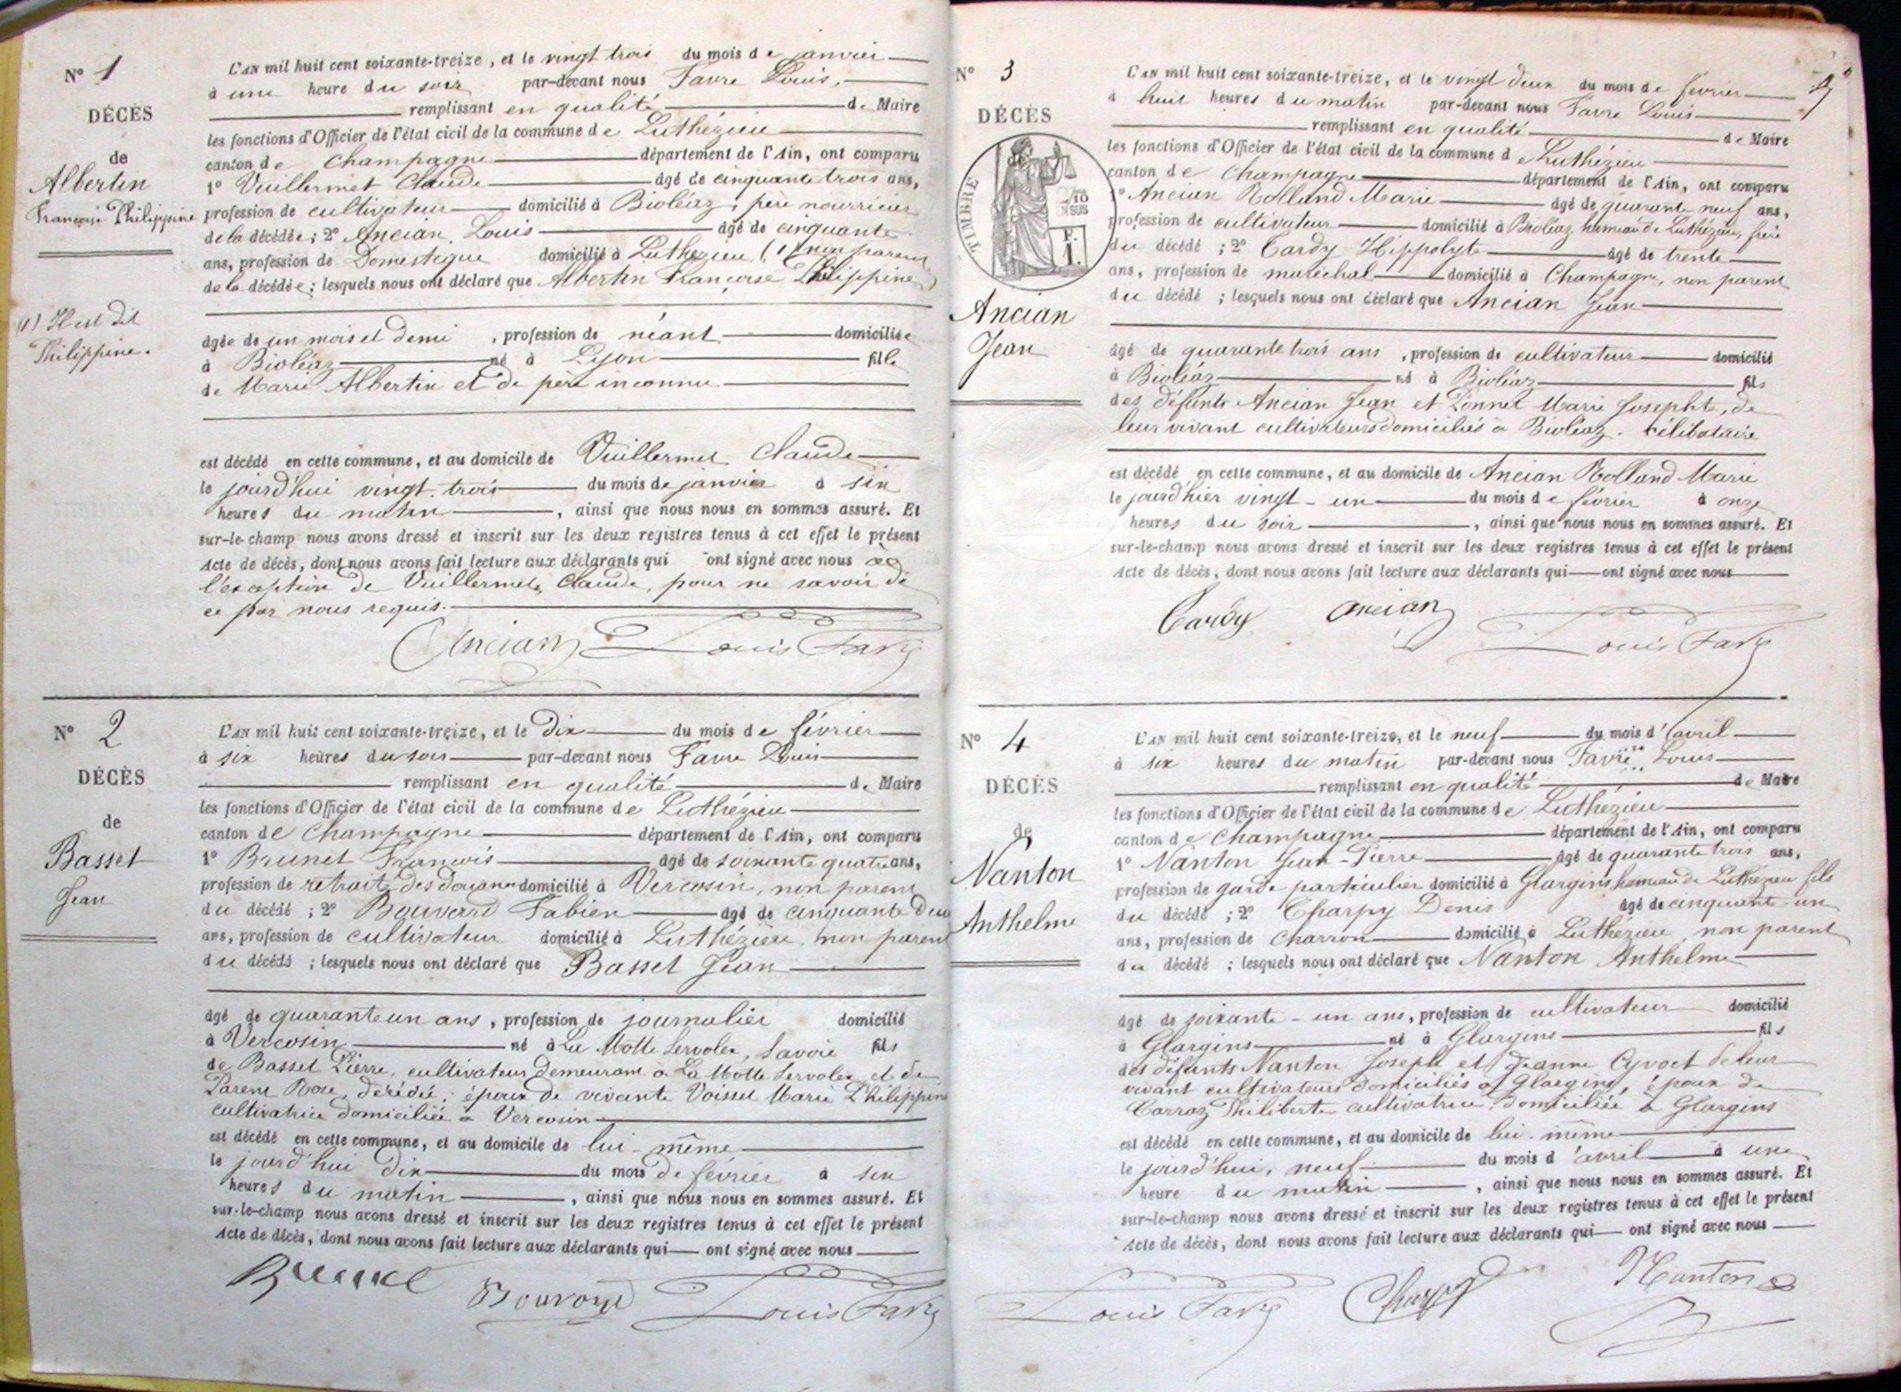 N° 1
DÉCÈS
de
Albertin
Françoise Philippine
(1) Il est dit
Philippine.
L'AN mil huit cent soixante-treize, et le vingt trois du mois de janvier
à une heure du soir par-devant nous Favre Louis,
remplissant en qualité de Maire
les fonctions d'Officier de l'état civil de la commune de Luthézieu
canton de Champagne département de l'Ain, ont comparu
1° Vuillermet Claude âgé de cinquante trois ans,
profession de cultivateur domicilié à Bioléaz, père nourricier
de la décédée; 2° Ancian Louis âgé de cinquante
ans, profession de Domestique domicilié à Luthézieu (1) non parent
de la décédée; lesquels nous ont déclaré que Albertin Françoise Philippine
âgée de un mois et demi, profession de néant domiciliée
à Bioléaz né à Lyon fille
de Marie Albertin et de père inconnu
est décédé en cette commune, et au domicile de Vuillermet Claude
le jourd'hui vingt-trois du mois de janvier à six
heures du matin, ainsi que nous nous en sommes assuré. Et
sur-le-champ nous avons dressé et inscrit sur les deux registres tenus à cet effet le présent
Acte de décès, dont nous avons fait lecture aux déclarants qui ont signé avec nous à
l'exception de Vuillermet Claude, pour ne savoir de
ce par nous requis.
Ancian Louis Favre
N° 2
DÉCÈS
de
Basset
Jean
L'AN mil huit cent soixante-treize, et le Dix du mois de février
à six heures du soir par-devant nous Favre Louis
remplissant en qualité de Maire
les fonctions d'Officier de l'état civil de la commune de Luthézieu
canton de Champagne département de l'Ain, ont comparu
1° Brunet François âgé de soixante quatre ans,
profession de retraité des douanes domicilié à Vercosin, non parent
du décédé; 2° Bouvard Fabien âgé de cinquante deux
ans, profession de cultivateur domicilié à Luthézieu, non parent
du décédé; lesquels nous ont déclaré que Basset Jean
âgé de quarante un ans, profession de journalier domicilié
à Vercosin né à La Motte Servolex, Savoie fils
de Basset Pierre, cultivateur demeurant à La Motte Servolex et de
Parent Rose, décédée; époux de vivante Voisset Marie Philippine
cultivatrice domiciliée à Vercosin
est décédé en cette commune, et au domicile de lui-même
le jourd'hui dix du mois de février à six
heures du matin, ainsi que nous nous en sommes assuré. Et
sur-le-champ nous avons dressé et inscrit sur les deux registres tenus à cet effet le présent
Acte de décès, dont nous avons fait lecture aux déclarants qui ont signé avec nous
Brunet Bouvard Louis Favre
N° 3
DÉCÈS
TIMBRE
Ancian
Jean
L'AN mil huit cent soixante-treize, et le vingt deux du mois de février
à huit heures du matin par-devant nous Favre Louis
remplissant en qualité de Maire
les fonctions d'Officier de l'état civil de la commune de Luthézieu
canton de Champagne département de l'Ain, ont comparu
1° Ancian Rolland Marie âgé de quarante neuf ans,
profession de cultivateur domicilié à Bioléaz hameau de Luthézieu, frère
du décédé; 2° Cardy Hippolyte âgé de trente
ans, profession de maréchal domicilié à Champagne, non parent
du décédé; lesquels nous ont déclaré que Ancian Jean
âgé de quarante trois ans, profession de cultivateur domicilié
à Bioléaz né à Bioléaz fils
des défunts Ancian Jean et Ponnet Marie Josephte, de
leur vivant cultivateurs domiciliés à Bioléaz. célibataire
est décédé en cette commune, et au domicile de Ancian Rolland Marie
le jourd'hier vingt-un du mois de février à onze
heures du soir, ainsi que nous nous en sommes assuré. Et
sur-le-champ nous avons dressé et inscrit sur les deux registres tenus à cet effet le présent
Acte de décès, dont nous avons fait lecture aux déclarants qui ont signé avec nous
Cardy Ancian Louis Favre
N° 4
DÉCÈS
de
Nanton
Anthelme
L'AN mil huit cent soixante-treize, et le neuf du mois d'avril
à six heures du matin par-devant nous Favre Louis
remplissant en qualité de Maire
les fonctions d'Officier de l'état civil de la commune de Luthézieu
canton de Champagne département de l'Ain, ont comparu
1° Nanton Jean-Pierre âgé de quarante trois ans,
profession de garde particulier domicilié à Glargins hameau de Luthézieu fils
du décédé; 2° Charpy Denis âgé de cinquante-un
ans, profession de charron domicilié à Luthézieu, non parent
du décédé; lesquels nous ont déclaré que Nanton Anthelme
âgé de soixante-un ans, profession de cultivateur domicilié
à Glargins né à Glargins fils
des défunts Nanton Joseph et Jeanne Cyvoct de leur
vivant cultivateurs domiciliés à Glargins, époux de
Carraz Philiberte cultivatrice domiciliée à Glargins
est décédé en cette commune, et au domicile de lui-même
le jourd'hui, neuf du mois d'avril à une
heure du matin, ainsi que nous nous en sommes assuré. Et
sur-le-champ nous avons dressé et inscrit sur les deux registres tenus à cet effet le présent
Acte de décès, dont nous avons fait lecture aux déclarants qui ont signé avec nous
Louis Favre Charpy Nanton